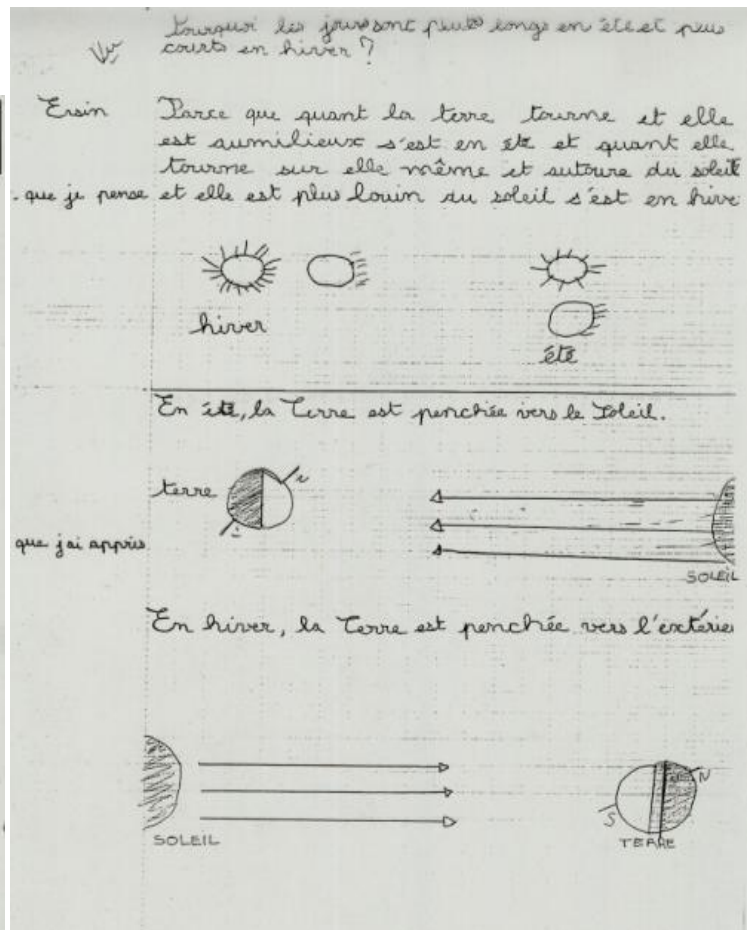 Pourquoi les jours sont plus longs en été et plus
courts en hiver ?
Vu
Ersin
Parce que quant la terre tourne et elle
est aumilieux s'est en été et quant elle
tourne sur elle même et autoure du soleil
que je pense et elle est plus louin du soleil s'est en hive
hiver
été
En été, la Terre est penchée vers le Soleil.
terre
N
que j'ai appris
SOLEIL
En hiver, la Terre est penchée vers l'extérie
N
S
SOLEIL
TERRE